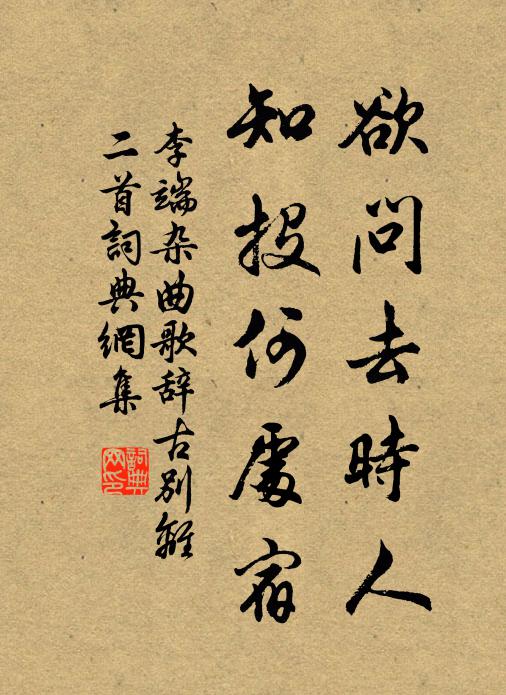 欲問去時人
知投何處宿
李端杂曲歌辞古別離
二首詞典網集
詞典
网印